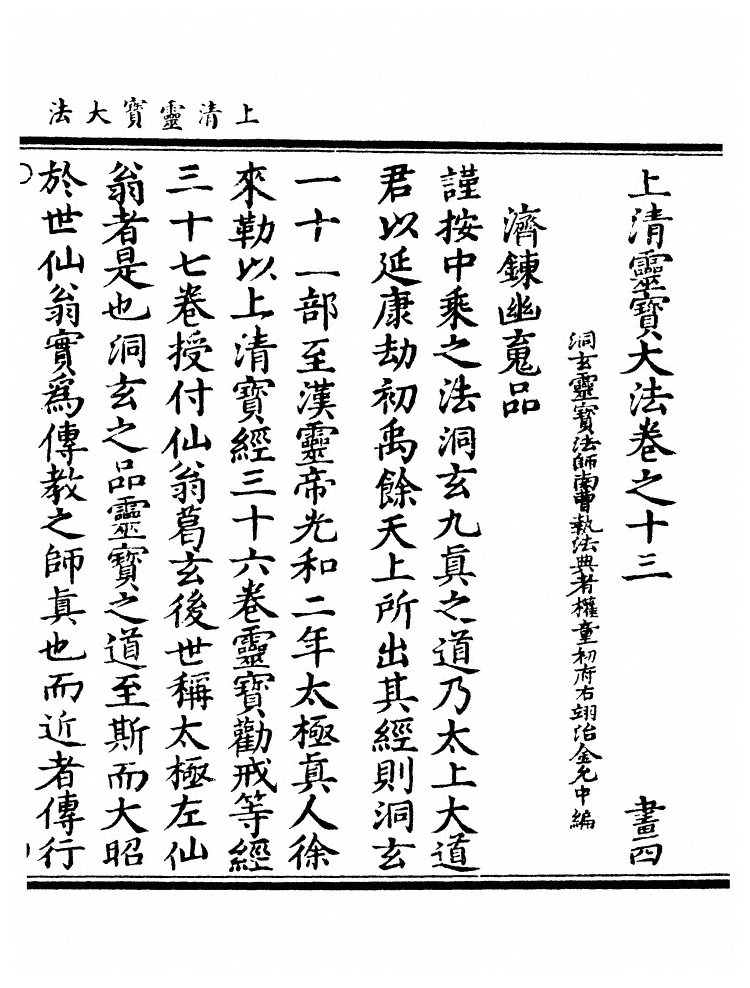 上清靈寶大法
上清靈寶大法卷之十三　畫四
洞玄靈寶法師南曹執法典者權童初府右翊治金允中編
濟鍊幽蒐品
謹按中乘之法洞玄九眞之道乃太上大道
君以延康劫初禹餘天上所出其經則洞玄
一十一部至漢靈帝光和二年太極眞人徐
來勒以上清寶經三十六卷靈寶勸戒等經
三十七卷授付仙翁葛玄後世稱太極左仙
翁者是也洞玄之品靈寶之道至斯而大昭
於世仙翁實爲傳教之師眞也而近者傳行